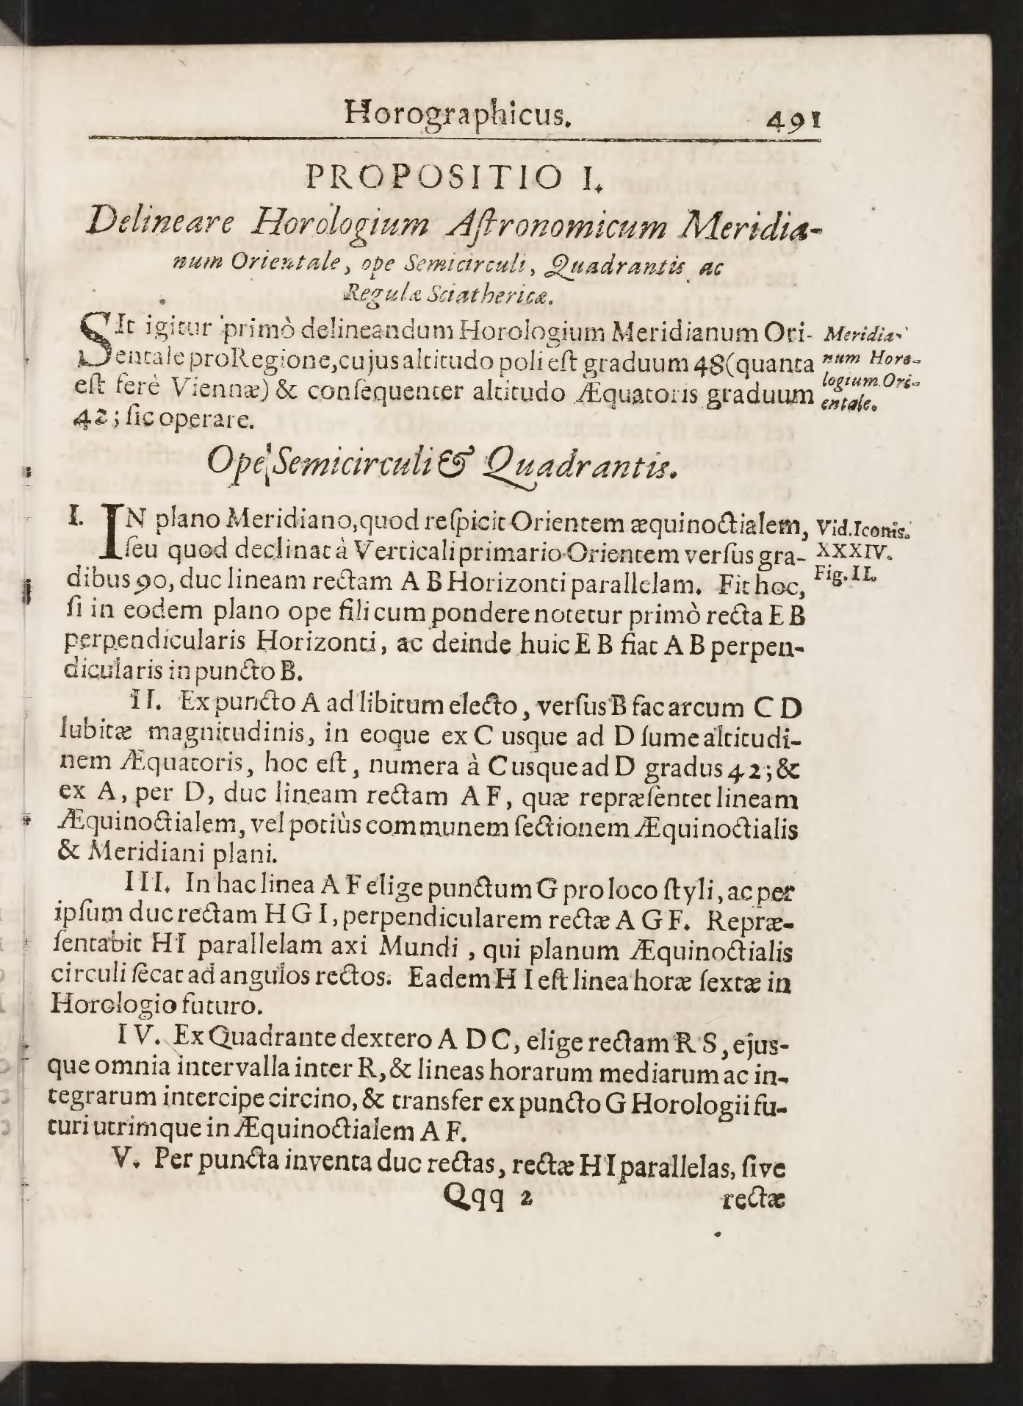 Horographicus. 491
PROPOSITIO I.
Delineare Horologium Aſtronomicum Meridia-
num Orientale, ope Semicirculi, Quadrantis ac
Regulæ Sciathericæ.
SIt igitur primò delineandum Horologium Meridianum Ori-
entale pro Regione, cujus altitudo poli eſt graduum 48 (quanta
eſt ferè Viennæ) & conſequenter altitudo Æquatoris graduum
42; ſic operare.
Meridia-
num Horo-
logium Ori-
entale.
Ope Semicirculi & Quadrantis.
I. IN plano Meridiano, quod reſpicit Orientem æquinoctialem,
ſeu quod declinat à Verticali primario Orientem verſus gra-
dibus 90, duc lineam rectam A B Horizonti parallelam. Fit hoc,
ſi in eodem plano ope fili cum pondere notetur primò recta E B
perpendicularis Horizonti, ac deinde huic E B fiat A B perpen-
dicularis in puncto B.
Vid. Iconis.
XXXIV.
Fig. II.
II. Ex puncto A ad libitum electo, verſus B fac arcum C D
lubitæ magnitudinis, in eoque ex C usque ad D ſume altitudi-
nem Æquatoris, hoc eſt, numera à C usque ad D gradus 42; &
ex A, per D, duc lineam rectam A F, quæ repræſentet lineam
Æquinoctialem, vel potiùs communem ſectionem Æquinoctialis
& Meridiani plani.
III. In hac linea A F elige punctum G pro loco ſtyli, ac per
ipſum duc rectam H G I, perpendicularem rectæ A G F. Repræ-
ſentabit H I parallelam axi Mundi, qui planum Æquinoctialis
circuli ſecat ad angulos rectos. Eadem H I eſt linea horæ ſextæ in
Horologio futuro.
IV. Ex Quadrante dextero A D C, elige rectam R S, ejus-
que omnia intervalla inter R, & lineas horarum mediarum ac in-
tegrarum intercipe circino, & transfer ex puncto G Horologii fu-
turi utrimque in Æquinoctialem A F.
V. Per puncta inventa duc rectas, rectæ H I parallelas, ſive
Qqq 2 rectæ